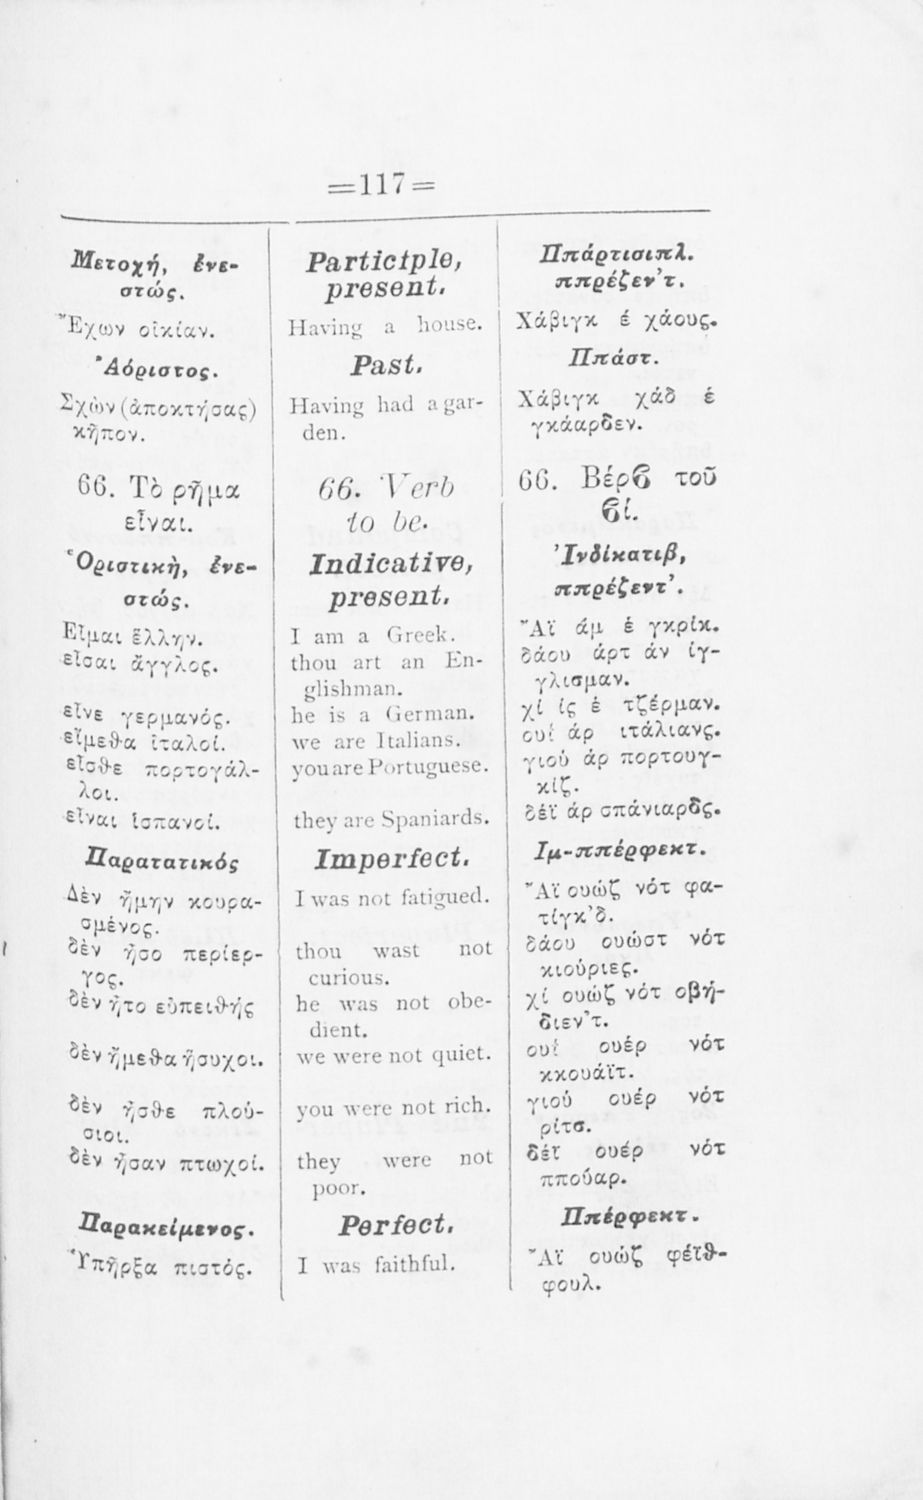 =117=
Μετοχή, ἐνε-
στώς.
Ἔχων οἰκίαν.
Ἀόριστος.
Σχὼν (ἀποκτήσας)
κῆπον.
66. Τὸ ρῆμα
εἶναι.
Ὁριστικὴ, ἐνε-
στώς.
Εἶμαι ἕλλην.
εἶσαι ἄγγλος.
εἶνε γερμανός.
εἴμεθα ἰταλοί.
εἶσθε πορτογάλ-
λοι.
εἶναι ἱσπανοί.
Παρατατικός
Δὲν ἤμην κουρα-
σμένος.
δὲν ἦσο περίερ-
γος.
δὲν ἦτο εὐπειθής
δὲν ἤμεθα ἥσυχοι.
δὲν ἦσθε πλού-
σιοι.
δὲν ἦσαν πτωχοί.
Παρακείμενος.
Ὑπῆρξα πιστός.
Participle,
present.
Having a house.
Past.
Having had a gar-
den.
66. Verb
to be.
Indicative,
present.
I am a Greek.
thou art an En-
glishman.
he is a German.
we are Italians.
you are Portuguese.
they are Spaniards.
Imperfect.
I was not fatigued.
thou wast not
curious.
he was not obe-
dient.
we were not quiet.
you were not rich.
they were not
poor.
Perfect.
I was faithful.
Ππάρτισιπλ.
ππρέζεν'τ.
Χάβιγκ έ χάους.
Ππάστ.
Χάβιγκ χάδ έ
γκάαρδεν.
66. Βέρϐ τοῦ
ϐί.
Ἰνδίκατιβ,
ππρέζεντ'.
Ἄϊ άμ έ γκρίκ.
δάου άρτ άν ίγ-
γλισμαν.
χί ίς έ τζέρμαν.
ουί άρ ιτάλιανς.
γιού άρ πορτουγ-
κίζ.
δέϊ άρ σπάνιαρδς.
Ιμ-ππέρφεκτ.
Ἄϊ ουώζ νότ φα-
τίγκ'δ.
δάου ουώστ νότ
κιούριες.
χί ουώζ νότ οβή-
διεν'τ.
ουί ουέρ νότ
κκουάϊτ.
γιού ουέρ νότ
ρίτσ.
δέϊ ουέρ νότ
ππούαρ.
Ππέρφεκτ.
Ἄϊ ουώζ φέϊθ-
φουλ.